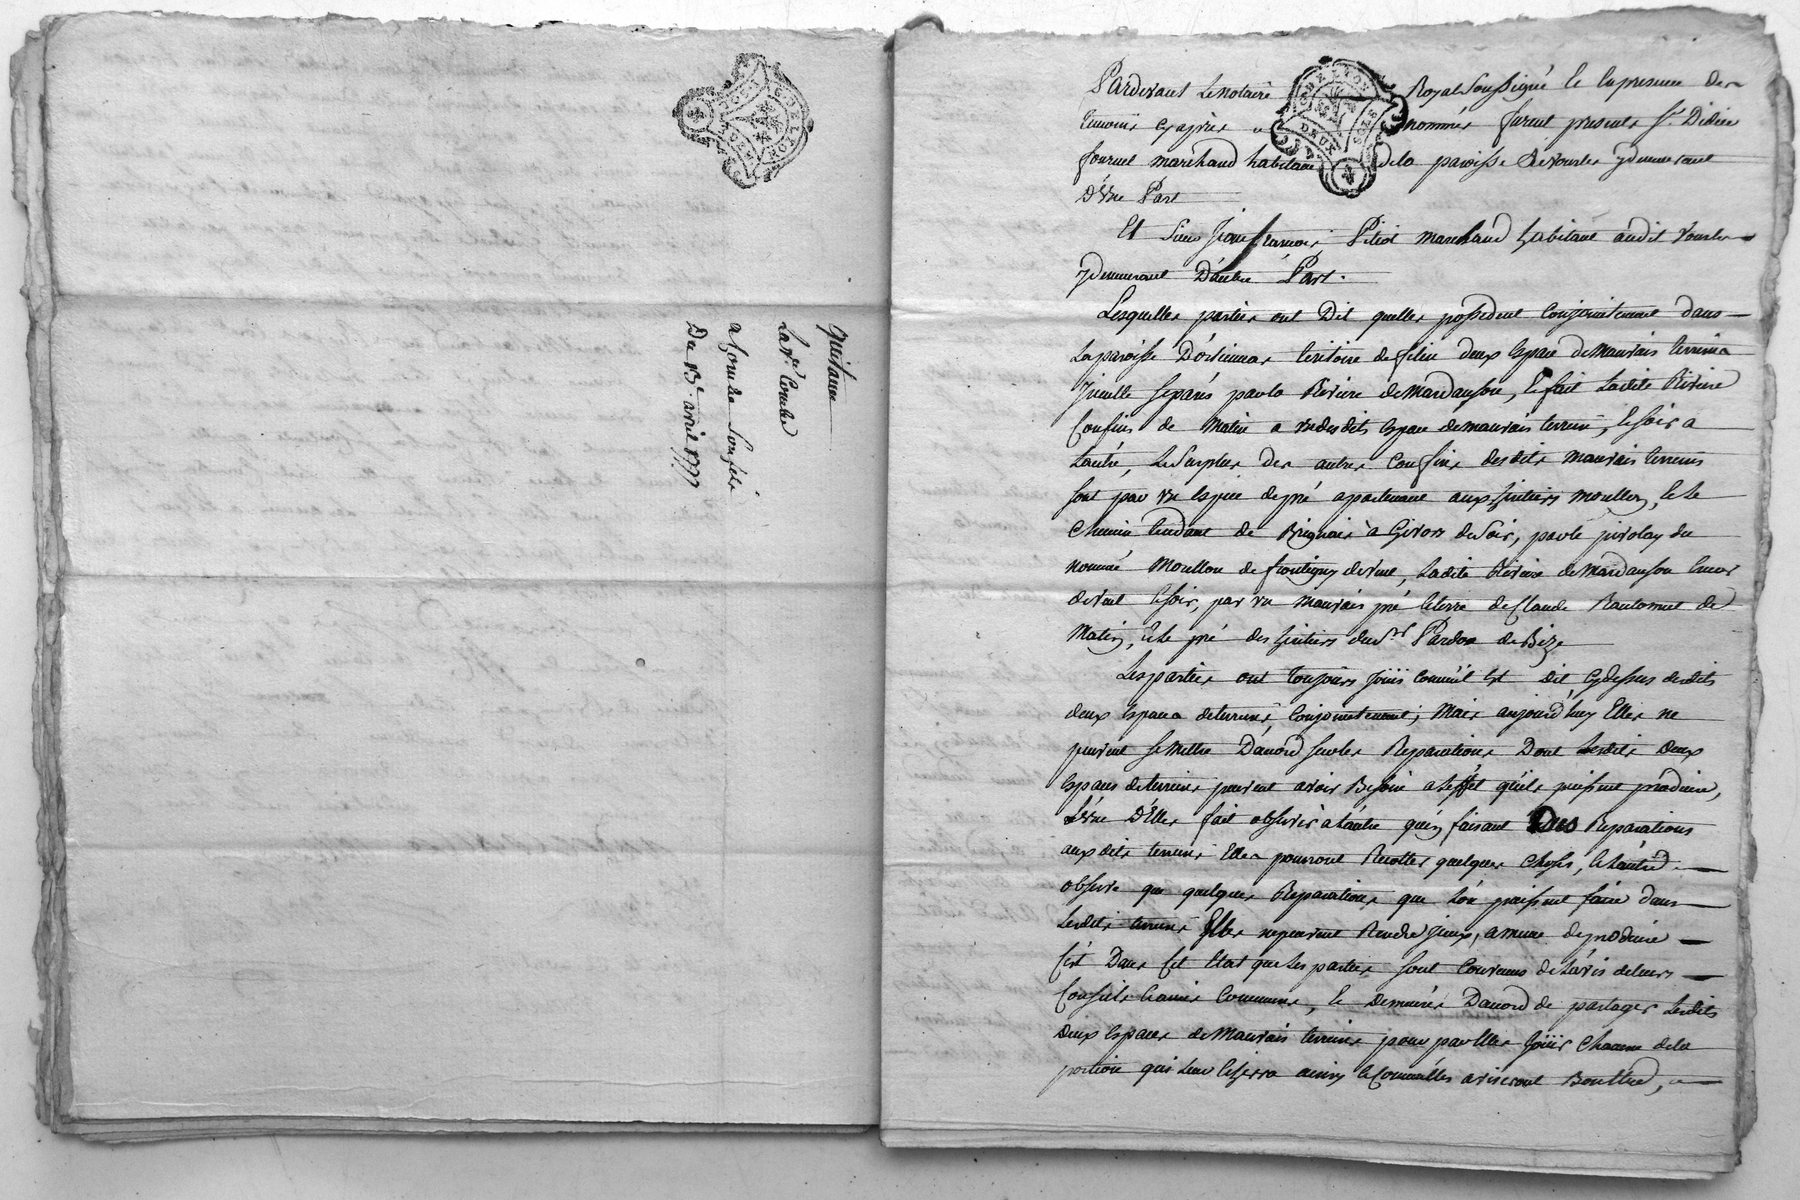 GEN. LYON
DEUX SOLS
quitance
La Ve Combe
a Combe Son fils
Du 13e avril 1777
GEN. LYON
DEUX SOLS
Pardevant Le notaire Royal Soussigné Et en presence des
temoins cy après nommés furent presents Sr. Didier
fournel marchand habitant de la paroisse de vourles y demeurant
d'Une Part
Et Sieur Jean francois Pitiot marchand habitant audit Vourles
y demeurant D'autre Part.
Lesquelles parties ont Dit quelles possedent Conjointement dans
La paroisse D'orlienas teritoire de deux Espace de Mauvais terrein
Jcelle Separés par la Riviere de Mardanson, Et fait Ladite Riviere
Confins de Matin a Un desdits Espace de mauvais terrein, Et Soir a
Lautre, Le Surplus des autres Confins desdits Mauvais terreins
Sont par Un Espece de pré apartenant aux heritiers moulton, Et Le
Chemin tendant de Brignais à Givors de Soir, par le du
nommé Moullon de de vent, Ladite Riviere de Mardanson Encor
de vent Et Soir, par Un Mauvais pré Et terre de Claude de
Matin, Et Le pré des heritiers du Sr. Pardon de Bize
Les parties ont toujours Joüis Comme il Est dit Cy dessus desdits
deux Espaces de terreins, Conjointement; Mais aujourd'huy Elles ne
peuvent Se Mettre D'acord Sur les Reparations Dont Lesdits deux
Espaces de terreins peuvent avoir Besoin a L'effet qu'ils puissent produire,
L'Une D'Elles fait observer a L'autre qu'en faisant Des Reparations
auxdits terreins Elles pourront Recolter quelques Choses, Et L'autre
observe que quelques Reparations que L'on puissent faire dans
Lesdits terreins Elles ne peuvent Rendre Jceux, a meme de produire
C'est Dans Cet Etat que Les parties Sont Convenus de L'avis de leurs
Conseils Et amis Communs, Et Demeurés D'accord de partager Lesdits
Deux Espaces de Mauvais terreins pour par Elles Joüir Chacune de la
portion qui Leur Echerra ainsy Et Comm'elles aviseront Bon Etre,